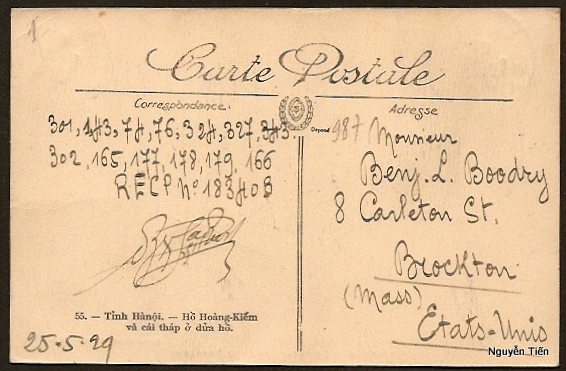 1
Carte Postale
Correspondance.
Adresse
301, 143, 74, 76, 324, 327, 343.
302, 165, 177, 178, 179, 166
RECP Nº 18340B
55. — Tỉnh Hànội. — Hồ Hoàng-Kiếm
và cái tháp ở dữa hồ.
25-5-29
Déposé
987
Monsieur
Benj. L. Boodry
8 Carleton St.
Brockton
(Mass)
États-Unis
Nguyễn Tiến